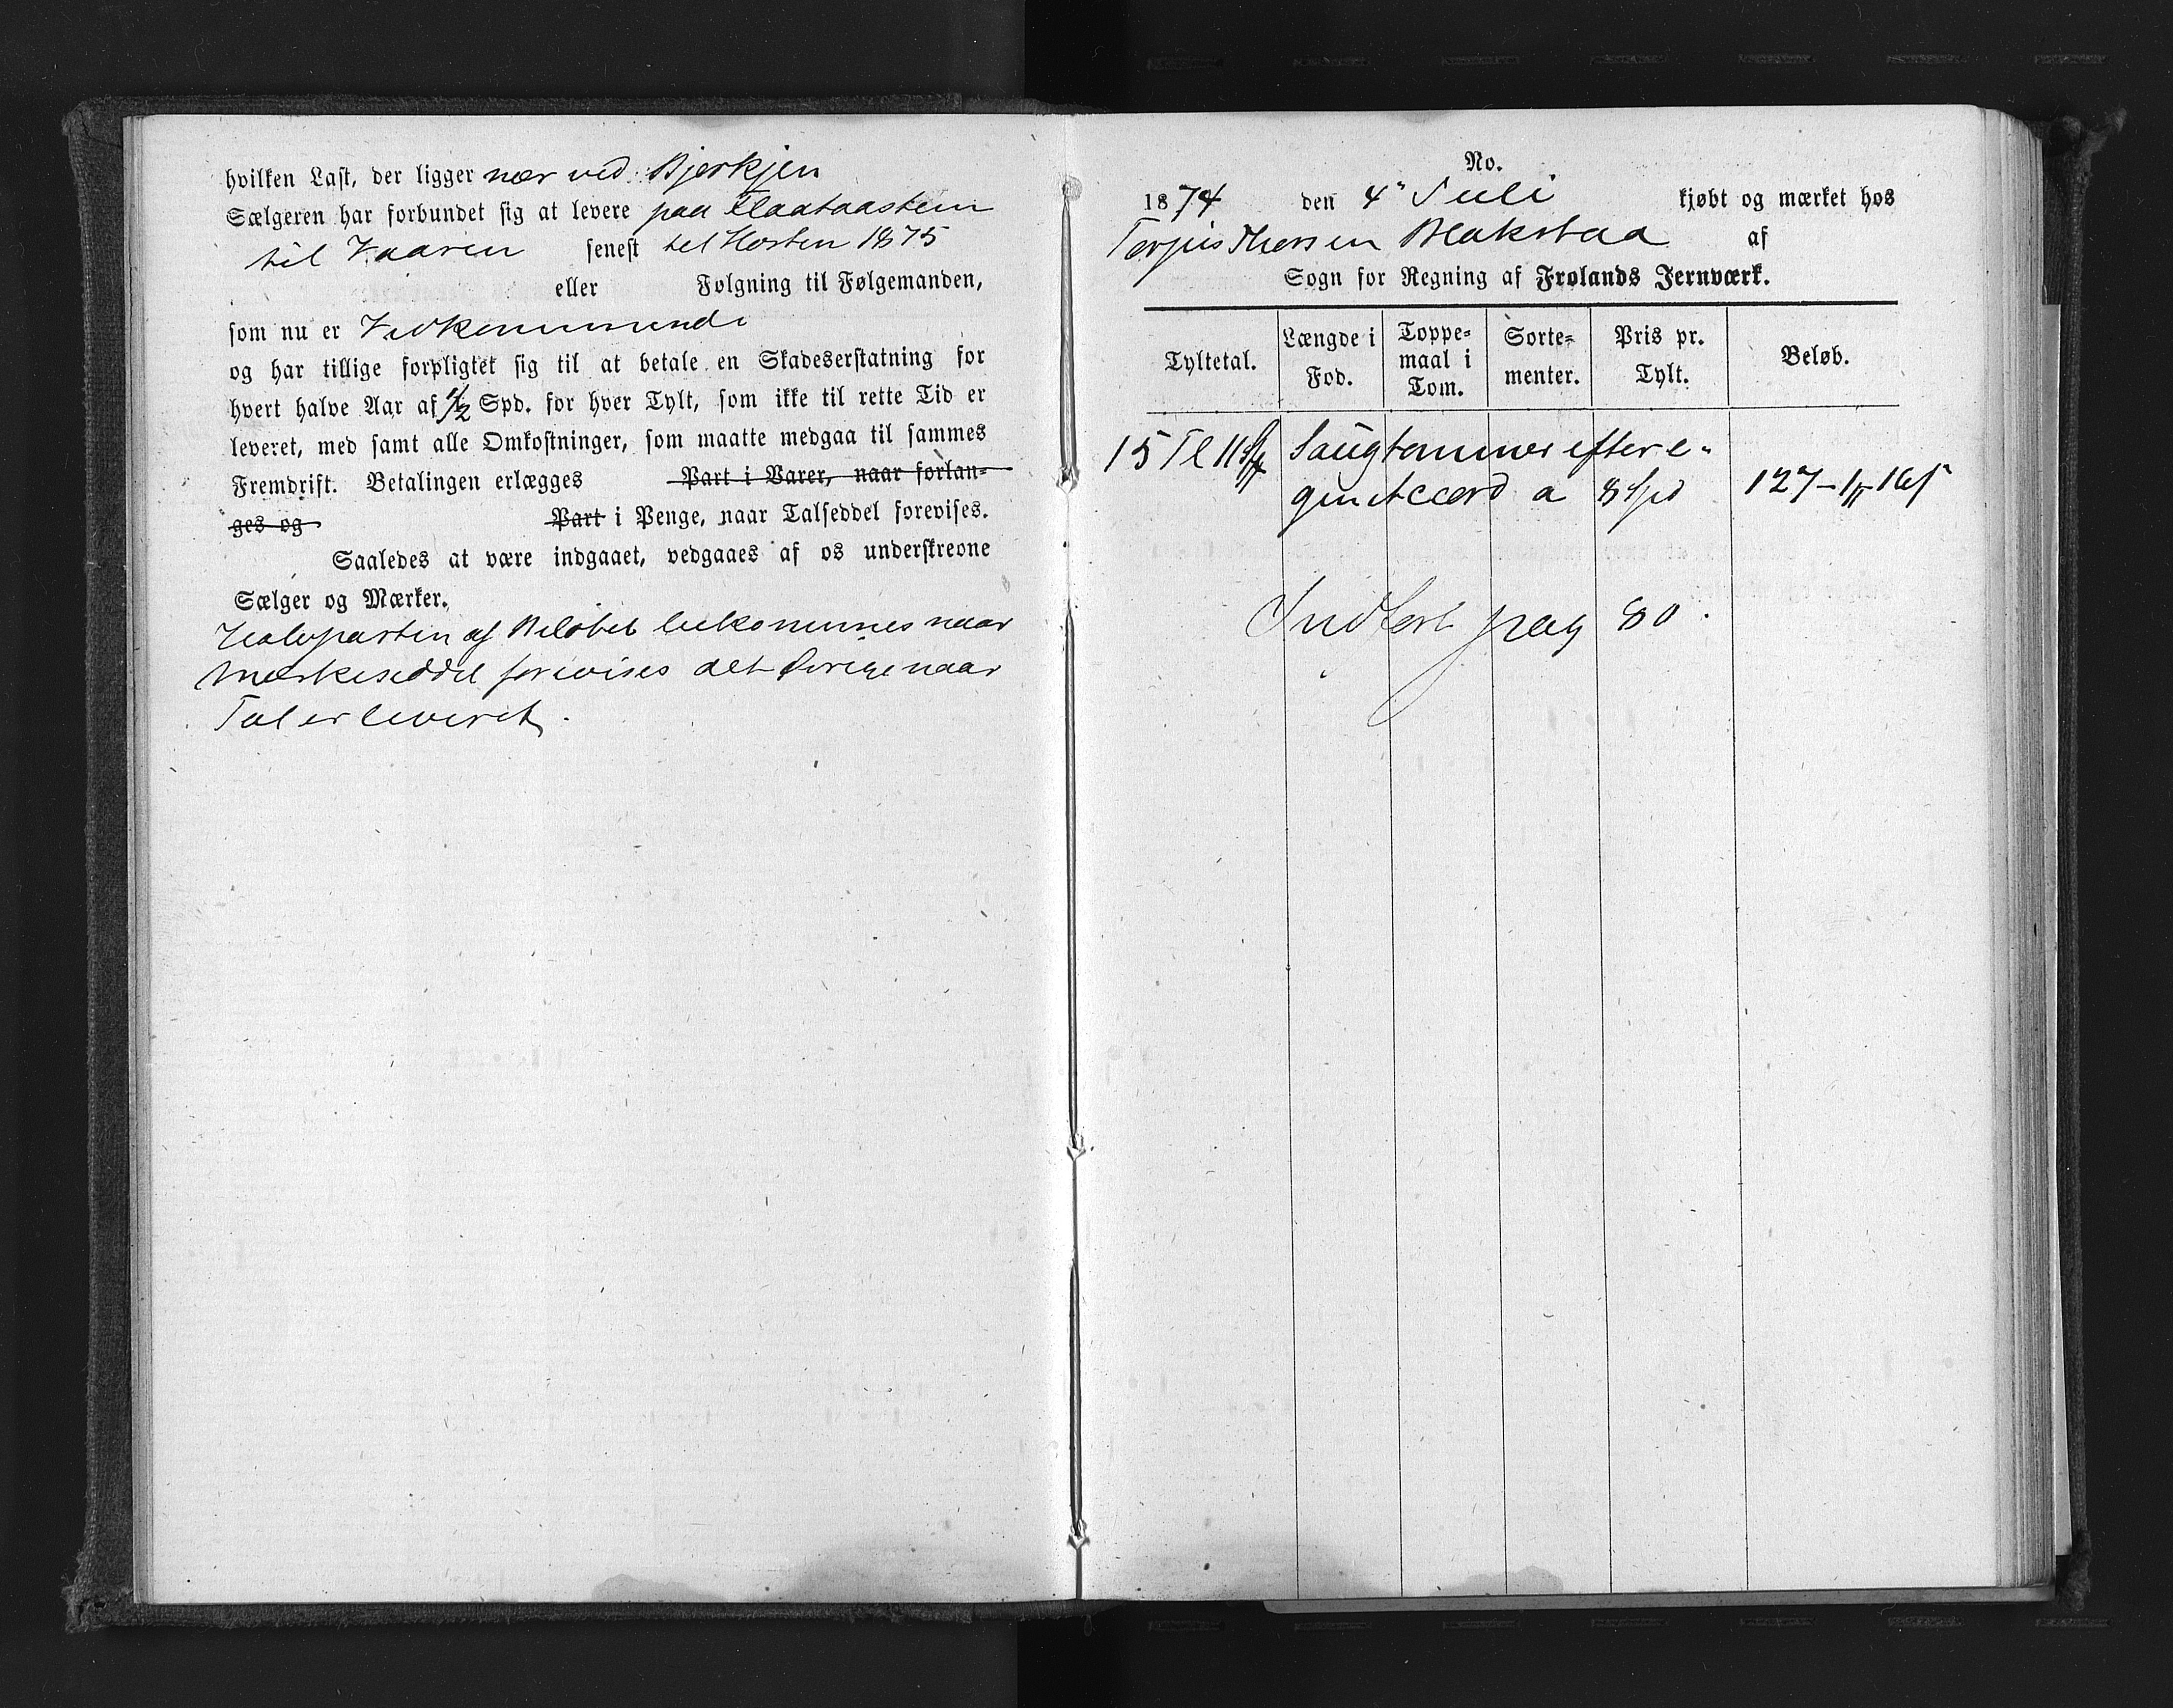 hvilken Last, der ligger nær ved Bjerkjen
Sælgeren har forbundet sig at levere paa Flaataastem
til Vaaren senest til Høsten 1875
eller Følgning til Følgemanden,
som nu er Vedkommende
og har tillige forpligtet sig til at betale en Skadeserstatning for
hvert halve Aar af 1/2 Spd. for hver Tylt, som ikke til rette Tid er
leveret, med samt alle Omkostninger, som maatte medgaa til sammes
Fremdrift. Betalingen erlægges Part i Varer, naar forlan-
ges og Part i Penge, naar Talseddel forevises.
Saaledes at være indgaaet, vedgaaes af os underskrevne
Sælger og Mærker.
Halvparten af Beløbet bekommes naar
Mærkeseddel forevises det Øvrige naar
Tal er leveret.
No.
1874 den 4" Juli kjøbt og mærket hos
Terjus Thorsen Blakstad af
Sogn for Regning af Frolands Jernværk.
Tyltetal. Længde i Fod. Toppe-maal i Tom. Sorte-menter. Pris pr. Tylt. Beløb.
15 Tl 11 Saugtømmer efter e-
gen Accord a 8 Spd 127 - 1 - 16 s
Indført pag 80.